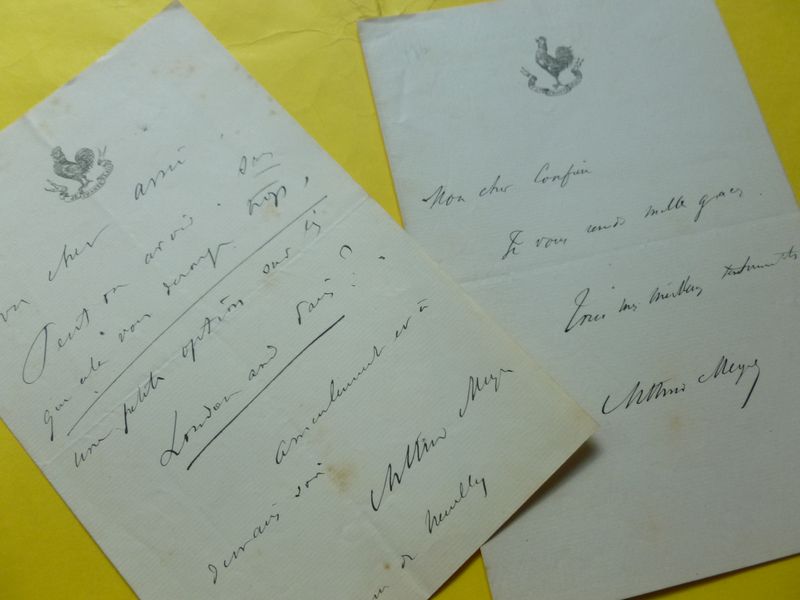 cher ami
Peut on avoir, sans
que cela vous dérange trop,
une petite option sur les
London and Paris ?
amicalement et à
demain soir
Arthur Meyer
de Neuilly
Mon cher Confrère
Je vous rends mille grâces.
Tous mes meilleurs sentiments
Arthur Meyer